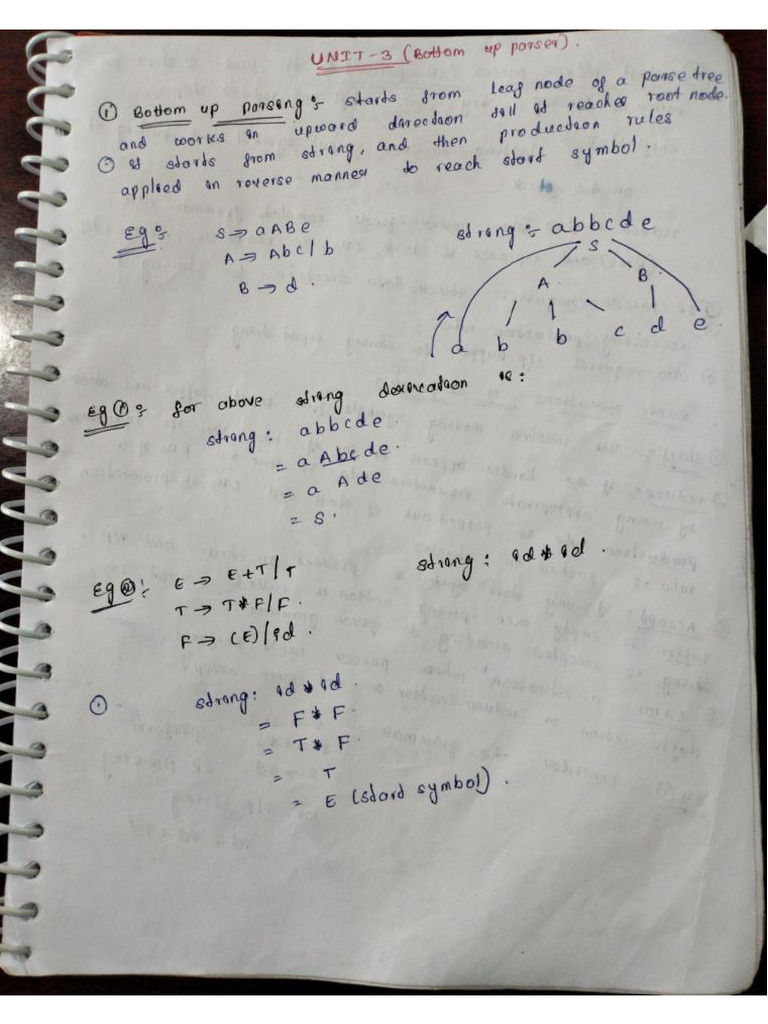 UNIT-3 (Bottom up parser).
① Bottom up parsing :- starts from leaf node of a parse tree
and works in upward direction till it reaches root node.
② it starts from string, and then production rules
applied in reverse manner to reach start symbol.
Eg :- S → aABe string :- abbcde
A → Abc/b S
B → d. A. B.
a b b c d e
Eg ① :- for above string derivation is :
string : abbcde.
= a Abc de.
= a A de
= S.
Eg ② :- E → E+T/T string : id * id.
T → T*F/F.
F → (E)/id.
① string : id * id.
= F * F.
= T * F.
= T
= E (start symbol).